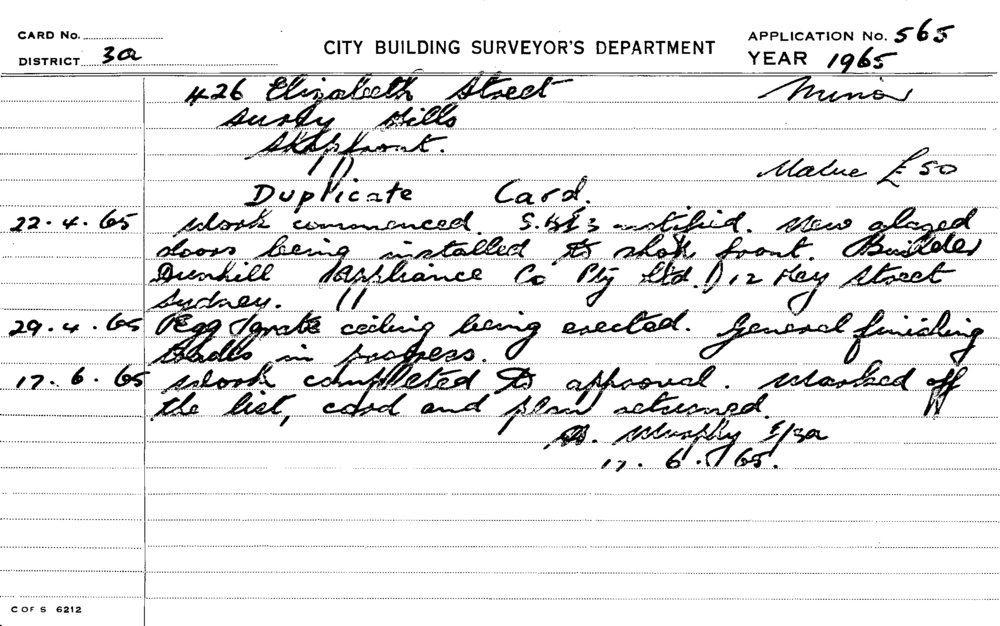 CARD No.
DISTRICT 3a
CITY BUILDING SURVEYOR'S DEPARTMENT
APPLICATION No. 565
YEAR 1965
426 Elizabeth Street
Minor
Surry Hills
Shopfront.
Value £50
Duplicate Card.
22.4.65 Work commenced. notified. New glazed
doors being installed to shop front. Builder
Dunhill Appliance Co Pty Ltd. 12 Hay Street
Sydney.
29.4.65 Egg crate ceiling being erected. General finishing
trades in progress.
17.6.65 Work completed to approval. Marked off
the list, card and plan returned.
Murphy
17.6.65.
C OF S 6212